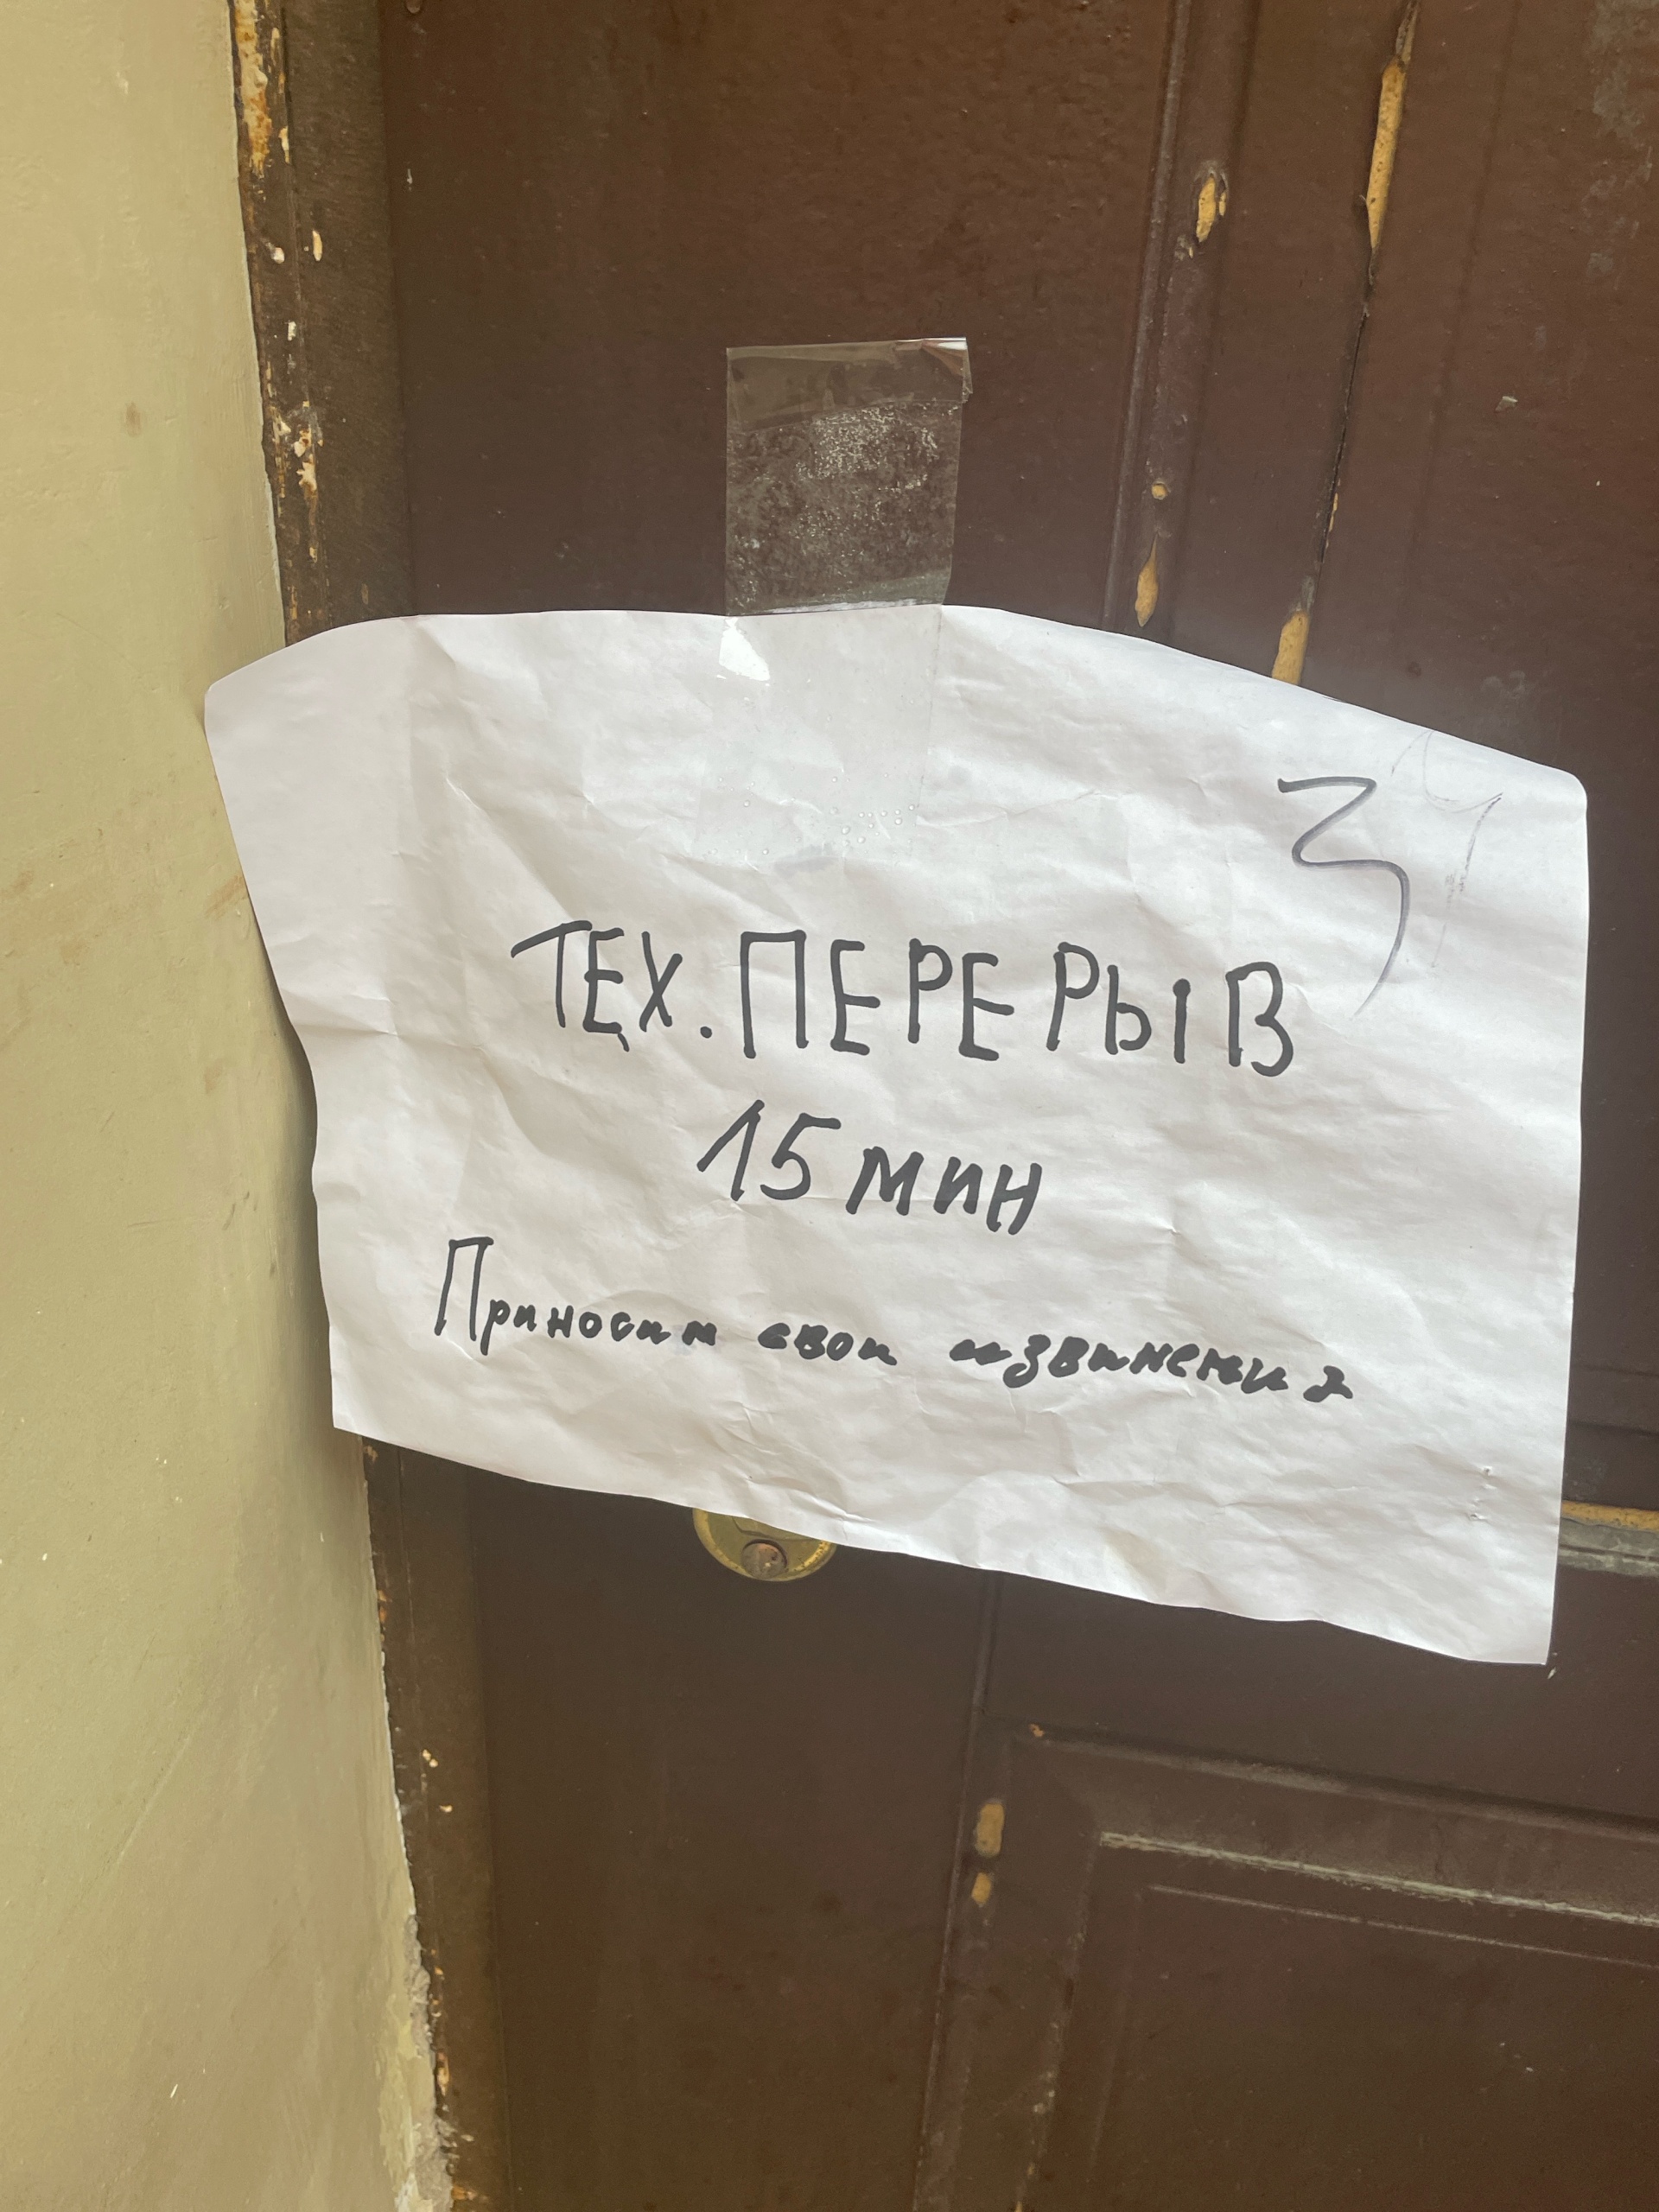 ТЕХ. ПЕРЕРЫВ
15 мин
Приносим свои извинения